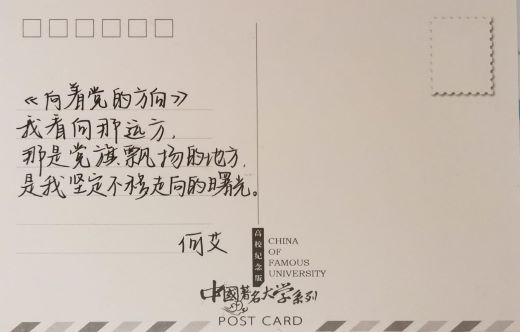 《向着党的方向》
我看向那远方，
那是党旗飘扬的地方，
是我坚定不移走向的曙光。
何艾
高校纪念版
CHINA
OF
FAMOUS
UNIVERSITY
中國著名大学系列
POST CARD